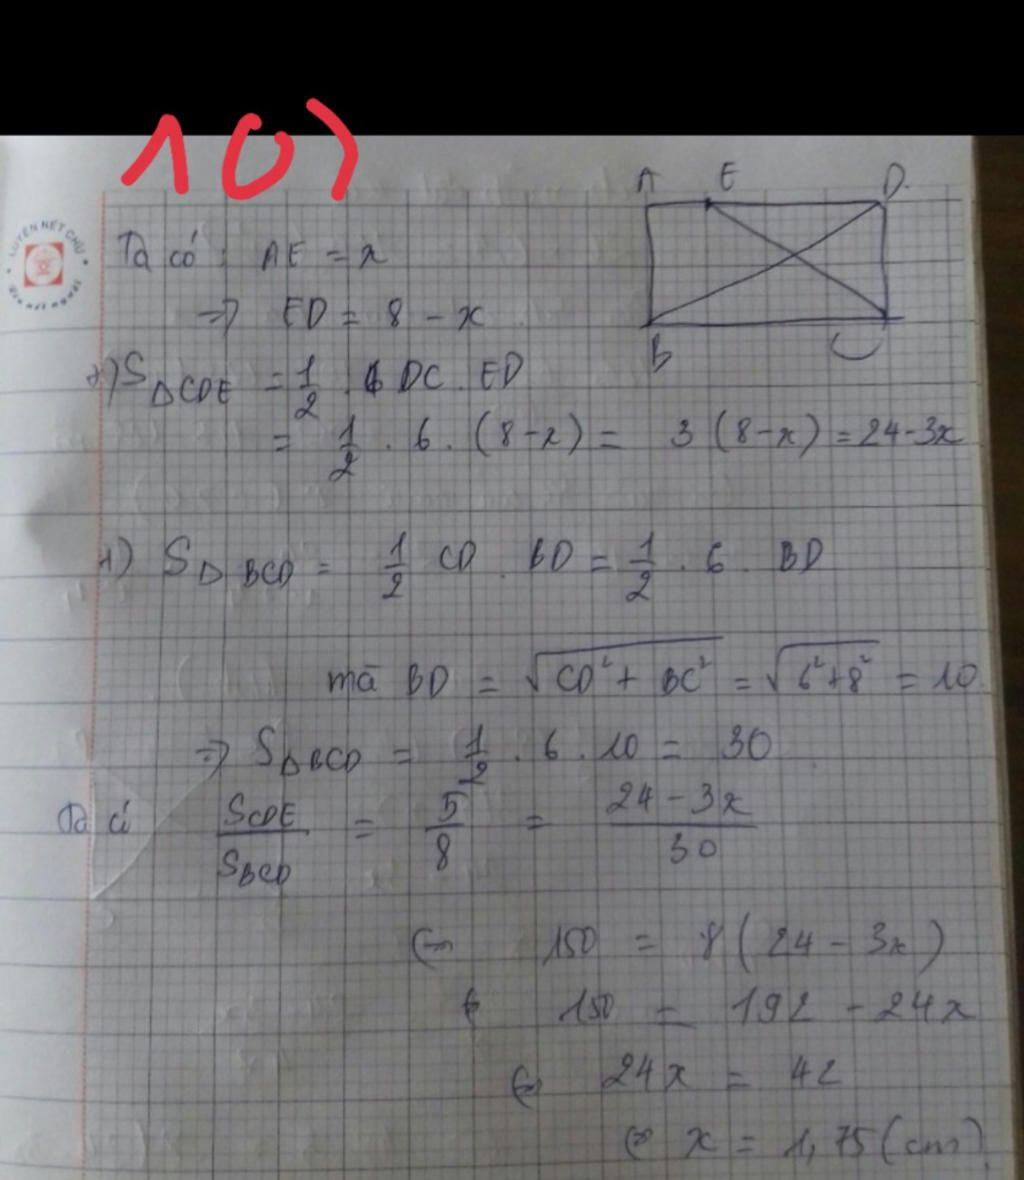 10)
A E D
Ta có : AE = x
LUYỆN NÉT CHỮ
=> ED = 8 - x
B C
+) SΔCDE = 1/2 . DC . ED
= 1/2 . 6 . (8-x) = 3 (8-x) = 24-3x
+) SΔ BCD = 1/2 CD . BD = 1/2 . 6 . BD
mà BD = √(CD² + BC²) = √(6²+8²) = 10
=> SΔBCD = 1/2 . 6 . 10 = 30
Ta có SCDE/SBCD = 5/8 = (24 - 3x)/30
150 = 8 ( 24 - 3x )
150 = 192 - 24x
24x = 42
x = 1,75 (cm)